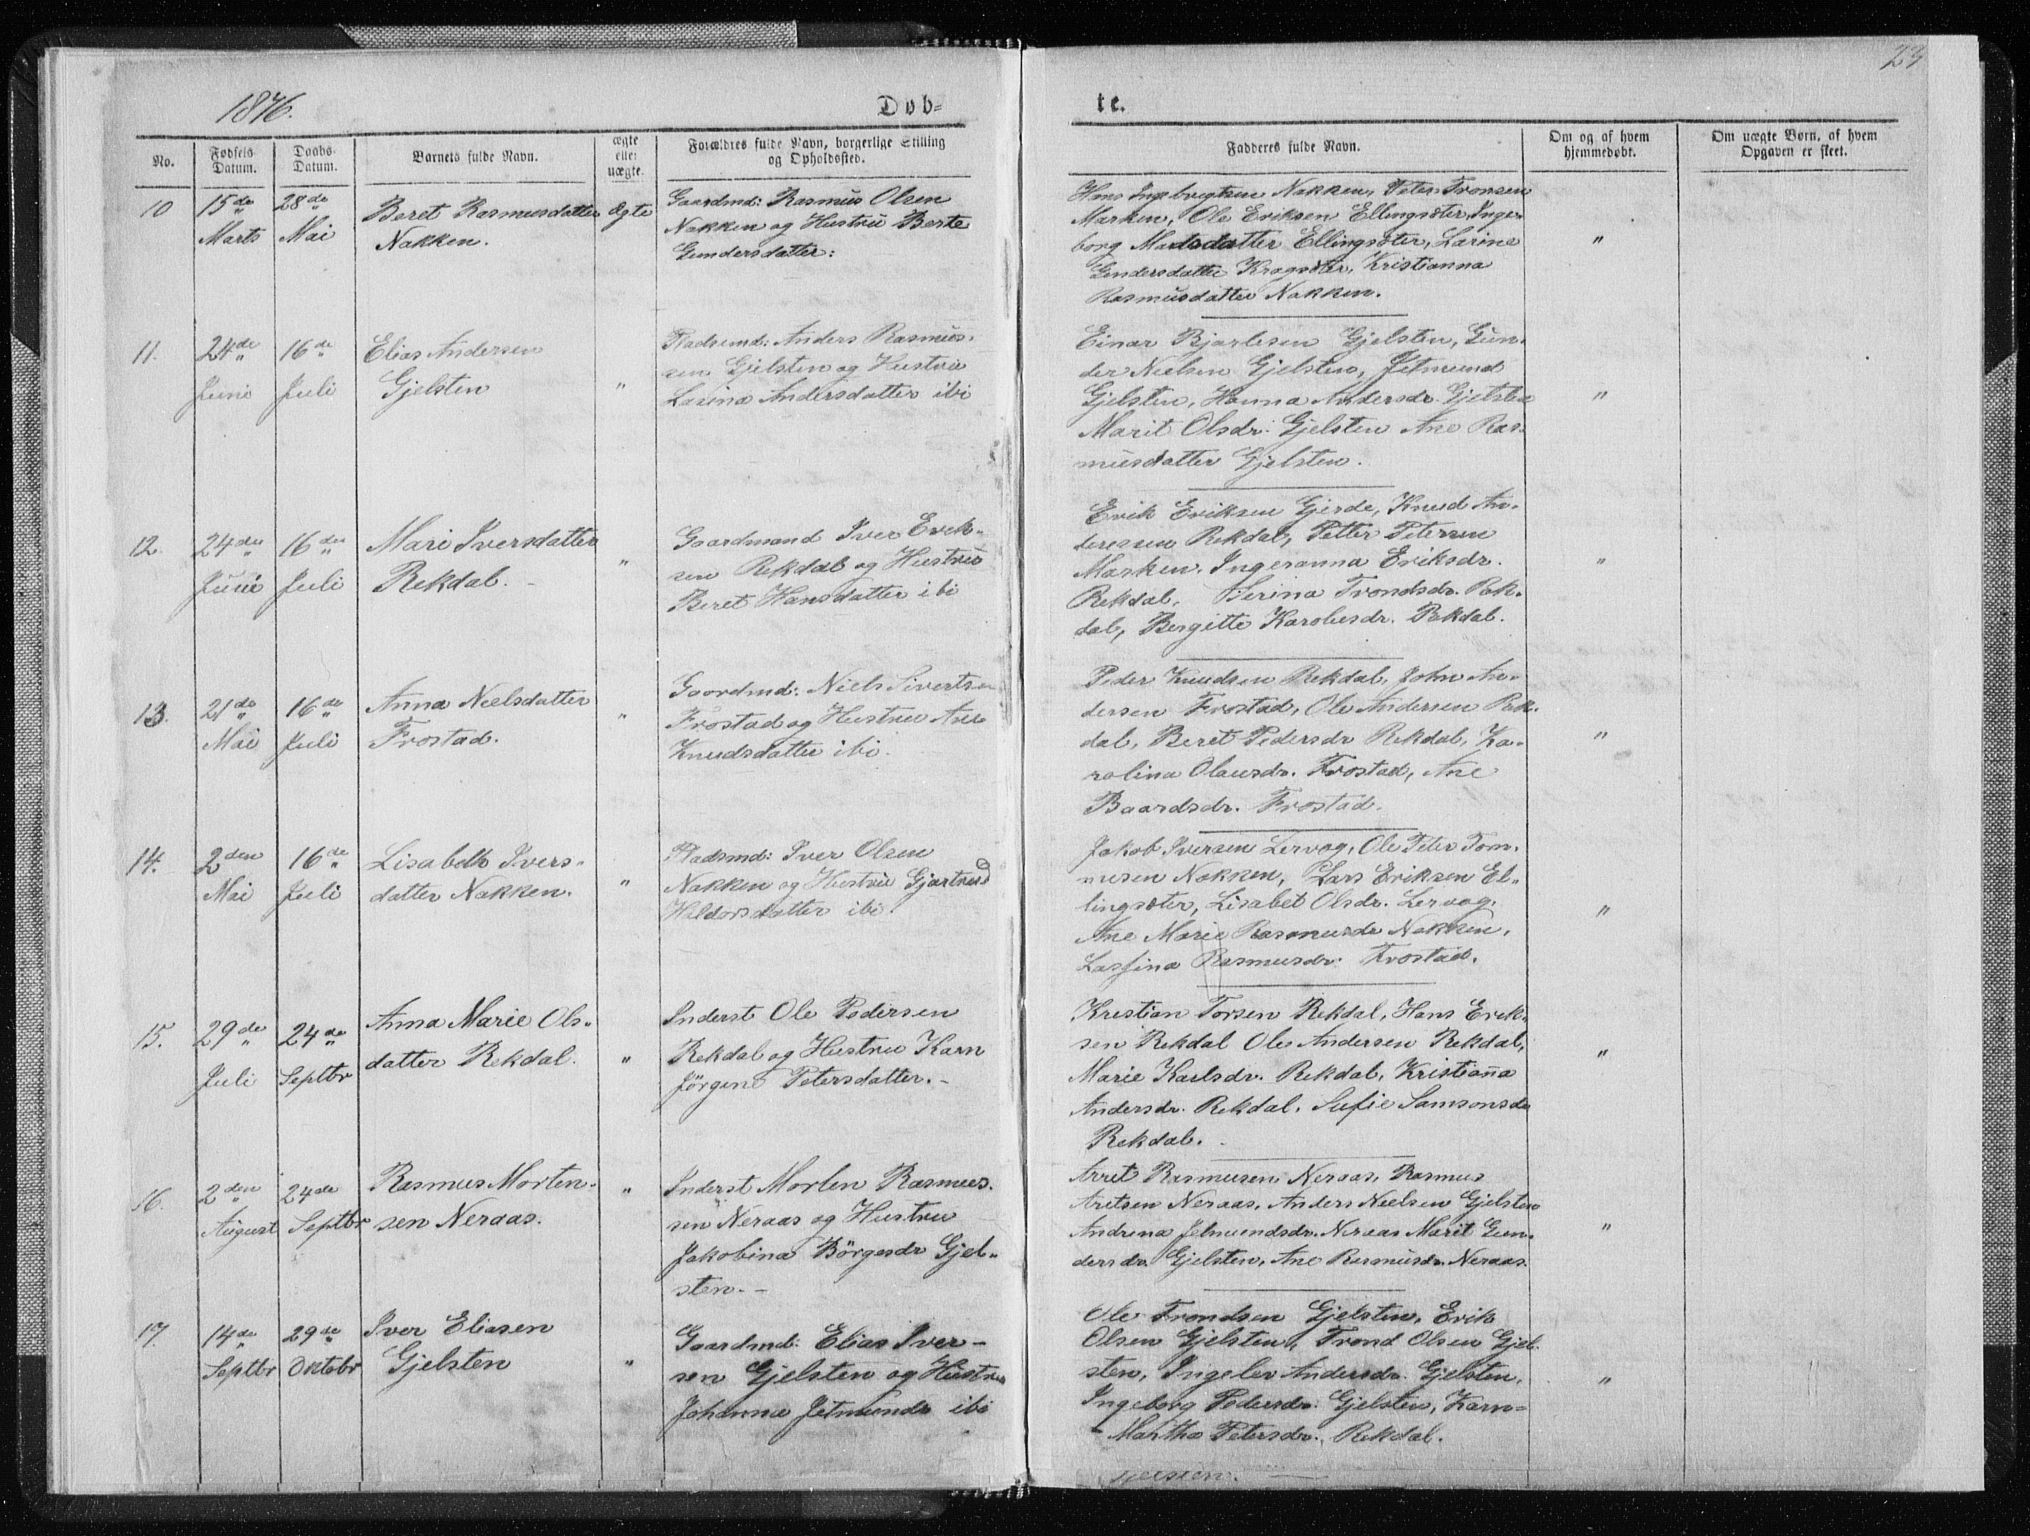 23
1876.
Døb-
te.
No.
Fødsels Datum.
Daabs Datum.
Barnets fulde Navn.
ægte eller uægte.
Forældres fulde Navn, borgerlige Stilling og Opholdssted.
Fadderes fulde Navn.
Om og af hvem hjemmedøbt.
Om uægte Børn, af hvem Opgaven er skeet.
10
15de Marts
28de Mai
Beret Rasmusdatter
Nakken.
ægte
Gaardmd: Rasmus Olsen
Nakken og Hustrü Berte
Gundersdatter:
Hans Ingebrigtsen Nakken, Peter Tronsen
Marken, Ole Eriksen Ellingsöter, Inge-
borg Madsdatter Ellingsöter, Larine
Gundersdatter Kragsöter, Kristianna
Rasmusdatter Nakken.
"
11.
24de Juni
16de Juli
Elias Andersen
Gjelsten
"
Pladsmd: Anders Rasmus-
sen Gjelsten og Hustru
Lasina Andersdatter ibi
Einar Bjarlesen Gjelsten, Gun-
der Nielsen Gjelsten, Jetmund
Gjelsten, Hanna Andersdr. Gjelsten
Marit Olsdr. Gjelsten Ane Ras-
musdatter Gjelsten.
"
12.
24de Juni
16de Juli
Mari Iversdatter
Rekdal.
"
Gaardmand Iver Erik-
sen Rekdal og Hustru
Beret Hansdatter ibi
Erik Eriksen Gjerde, Knud An-
dersen Rekdal, Petter Petersen
Marken, Ingeranna Eriksdr.
Rekdal, Serina Trondsdr. Rek-
dal, Bergitte Karolusdr. Rekdal.
"
13.
21de Mai
16de Juli
Anna Nielsdatter
Frostad.
"
Gaardmd: Niels Sivertsen
Frostad og Hustru Ane
Knudsdatter ibi.
Peder Knudsen Rekdal, John An-
dersen Frostad, Ole Andersen Rek-
dal, Beret Pedersdr Rekdal, Ka-
rolina Olausdr. Frostad, Ane
Baardsdr. Frostad.
"
14.
2den Mai
16de Juli
Lisabeth Ivers-
datter Nakken.
"
Pladsmd: Iver Olsen
Nakken og Hustru Gjartrud
Haldorsdatter ibi.
Jakob Iversen Lervog, Ole Peter Tom-
mesen Nakken, Lars Eriksen El-
lingsöter, Lisabet Olsdr. Lervog.
Ane Marie Rasmusdr Nakken,
Rasmusdr. Frostad.
"
15.
29de Juli
24de Septbr
Anna Marie Ols-
datter Rekdal.
"
Inderst Ole Pedersen
Rekdal og Hustru Karn
Jørgene Petersdatter.-
Kristian Torsen Rekdal, Hans Erik-
sen Rekdal Ole Andersen Rekdal,
Marie Karlsdr. Rekdal, Kristianna
Andersdr. Rekdal, Sufie Samsonsdr
Rekdal.
"
16.
2den August
24de Septbr
Rasmus Morten-
sen Neraas.
"
Inderst Morten Rasmus-
sen Neraas og Hustru
Jakobina Börgesdr Gjel-
sten.-
Arret Rasmusen Neraas, Rasmus
Aretsen Neraas, Anders Nielsen Gjelsten
Andrena Jetmundsdr. Neraas Marit Gun-
dersdr. Gjelsten, Ane Rasmusdr. Neraas.
"
17.
14de Septbr
29de Oktobr
Iver Eliasen
Gjelsten
"
Gaardmd: Elias Iver-
sen Gjelsten og Hustru
Johanna Jetmundsdr ibi
Ole Trondsen Gjelsten, Erik
Olsen Gjelsten, Trond Olsen Gjel-
sten, Ingelev Andersdr. Gjelsten,
Ingeborg Pedersdr. Gjelsten, Karn-
Martha Petersdr. Rekdal.